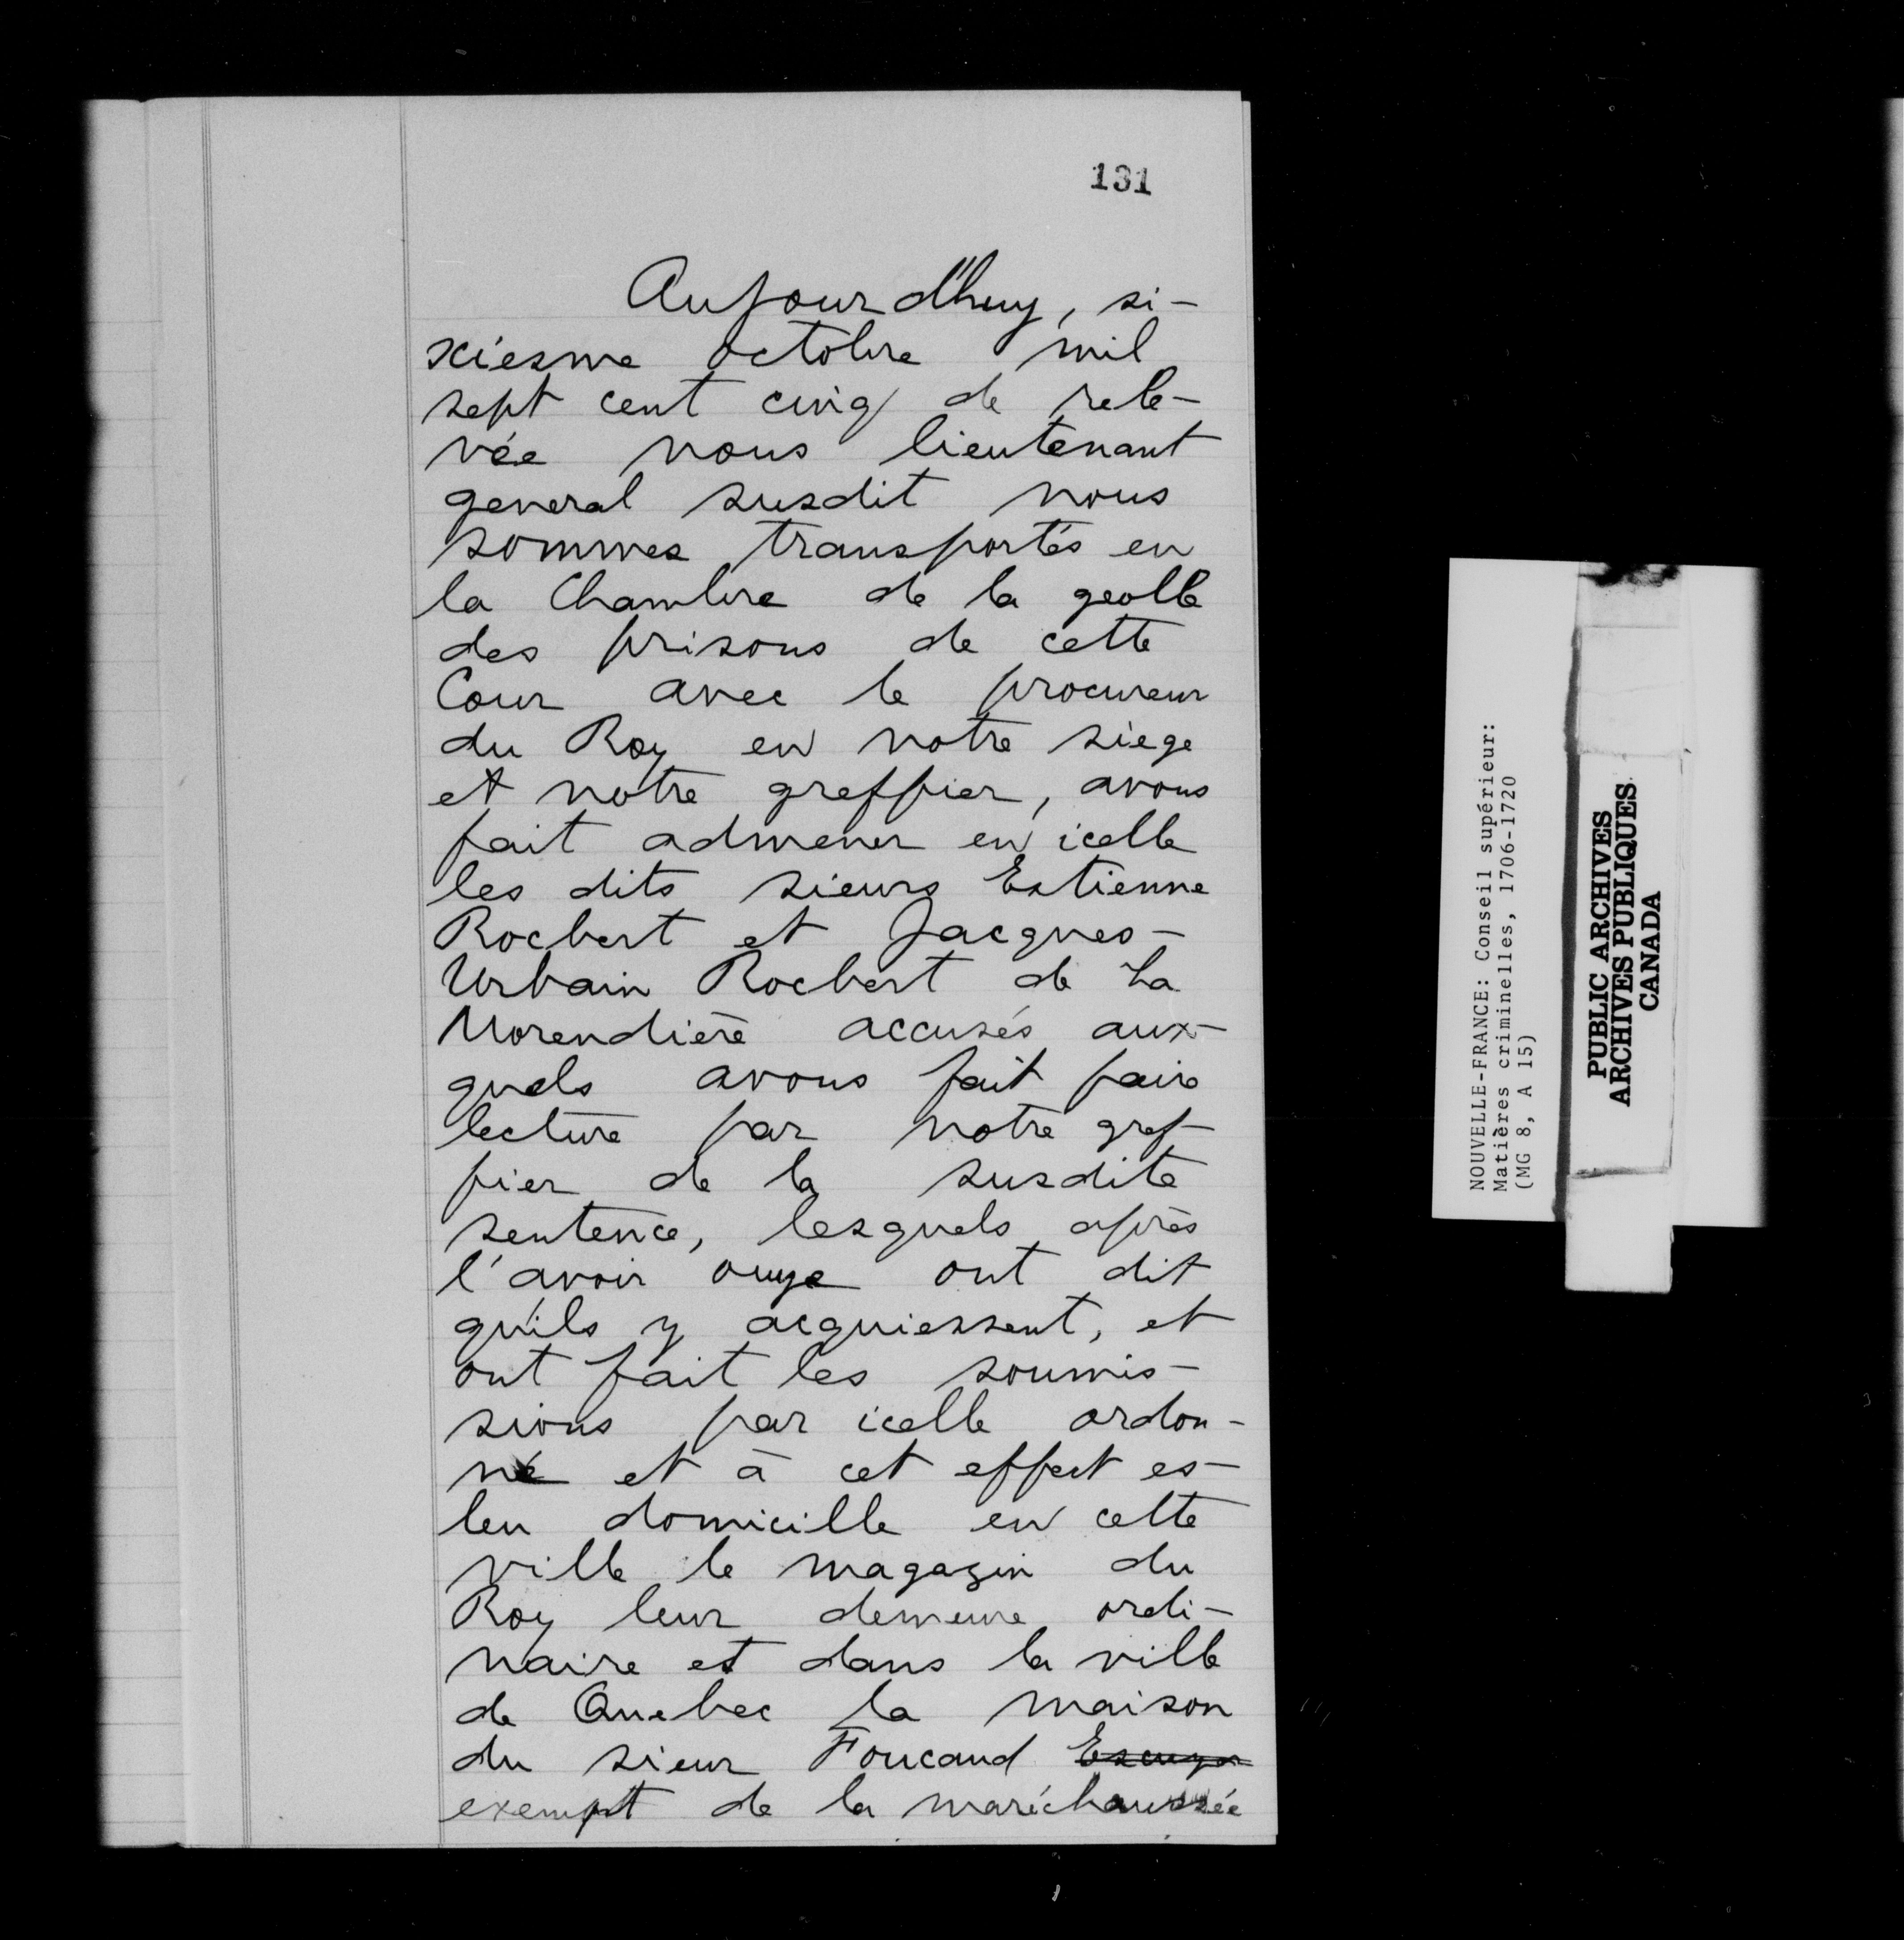 131
Aujourd'huy, si-
xiesme octobre mil
sept cent cinq de rele-
vée nous lieutenant
general susdit nous
sommes transportés en
la Chambre de la geolle
des prisons de cette
Cour avec le procureur
du Roy en notre siege
et notre greffier, avons
fait admener en icelle
les dits sieurs Estienne
Rocbert et Jacques-
Urbain Rocbert de La
Morendière accusés aux-
quels avons fait faire
lecture par notre gref-
fier de la susdite
sentence, lesquels après
l'avoir ouye ont dit
qu'ils y acquiessent, et
ont fait les soumis-
sions par icelle ordon-
né et à cet effect es-
leu domicille en cette
ville le magazin du
Roy leur demeure ordi-
naire et dans la ville
de Quebec la maison
du sieur Foucaud
exempt de la maréchaussée
NOUVELLE-FRANCE: Conseil supérieur:
Matières criminelles, 1706-1720
(MG 8, A 15)
PUBLIC ARCHIVES
ARCHIVES PUBLIQUES
CANADA